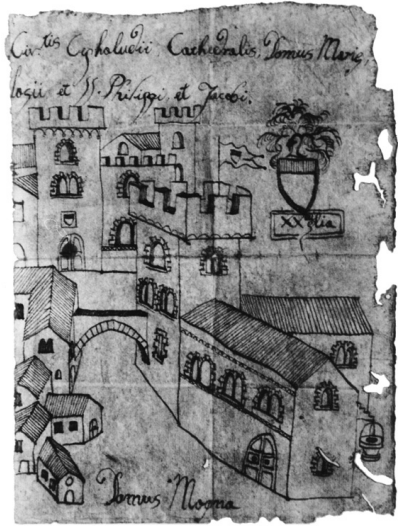 Civtis Cephaludii Cathedralis. Domus
et SS. Philippi et Jacobi.
XX lia
Domus Magna